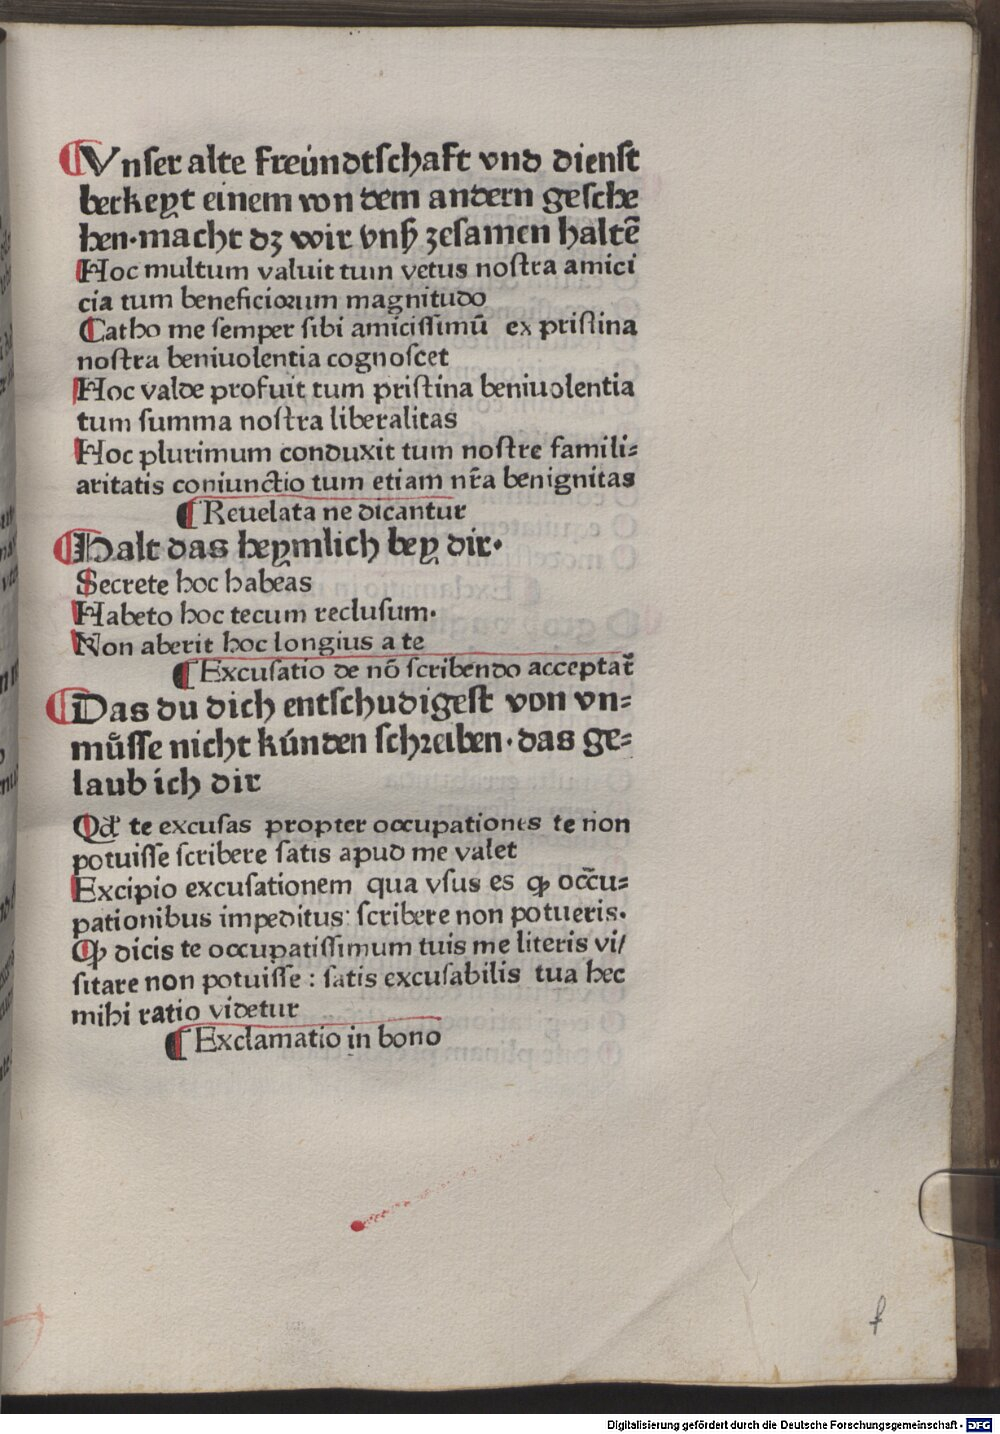 ¶Vnſer alte freúndtſchaft vnd dienſt
berkeyt einem von dem andern geſche
hen·macht dʒ wir vnß ʒeſamen haltē
Hoc multum valuit tum vetus noſtra amici
cia tum beneficiorum magnitudo
Catho me ſemper ſibi amiciſſimū ex priſtina
noſtra beniuolentia cognoſcet
Hoc valde profuit tum priſtina beniuolentia
tum ſumma noſtra liberalitas
Hoc plurimum conduxit tum noſtre famili⸗
aritatis coniunctio tum etiam nr̄a benignitas
¶Reuelata ne dicantur
¶Halt das heymlich bey dir·
Secrete hoc habeas
Habeto hoc tecum recluſum·
Non aberit hoc longius a te
¶Excuſatio de nō ſcribendo acceptat᷑
¶Das du dich entſchudigeſt von vn⸗
mu̇ſſe nicht kúnden ſchreiben·das ge⸗
laub ich dir
Qd̓ te excuſas propter occupationes te non
potuiſſe ſcribere ſatis apud me valet
Excipio excuſationem qua vſus es ꝙ occ̄u⸗
pationibus impeditus: ſcribere non potueris·
Ꝙ dicis te occupatiſſimum tuis me literis vi/
ſitare non potuiſſe : ſatis excuſabilis tua hec
mihi ratio videtur
¶Exclamatio in bono
f
Digitalisierung gefördert durch die Deutsche Forschungsgemeinschaft - DFG